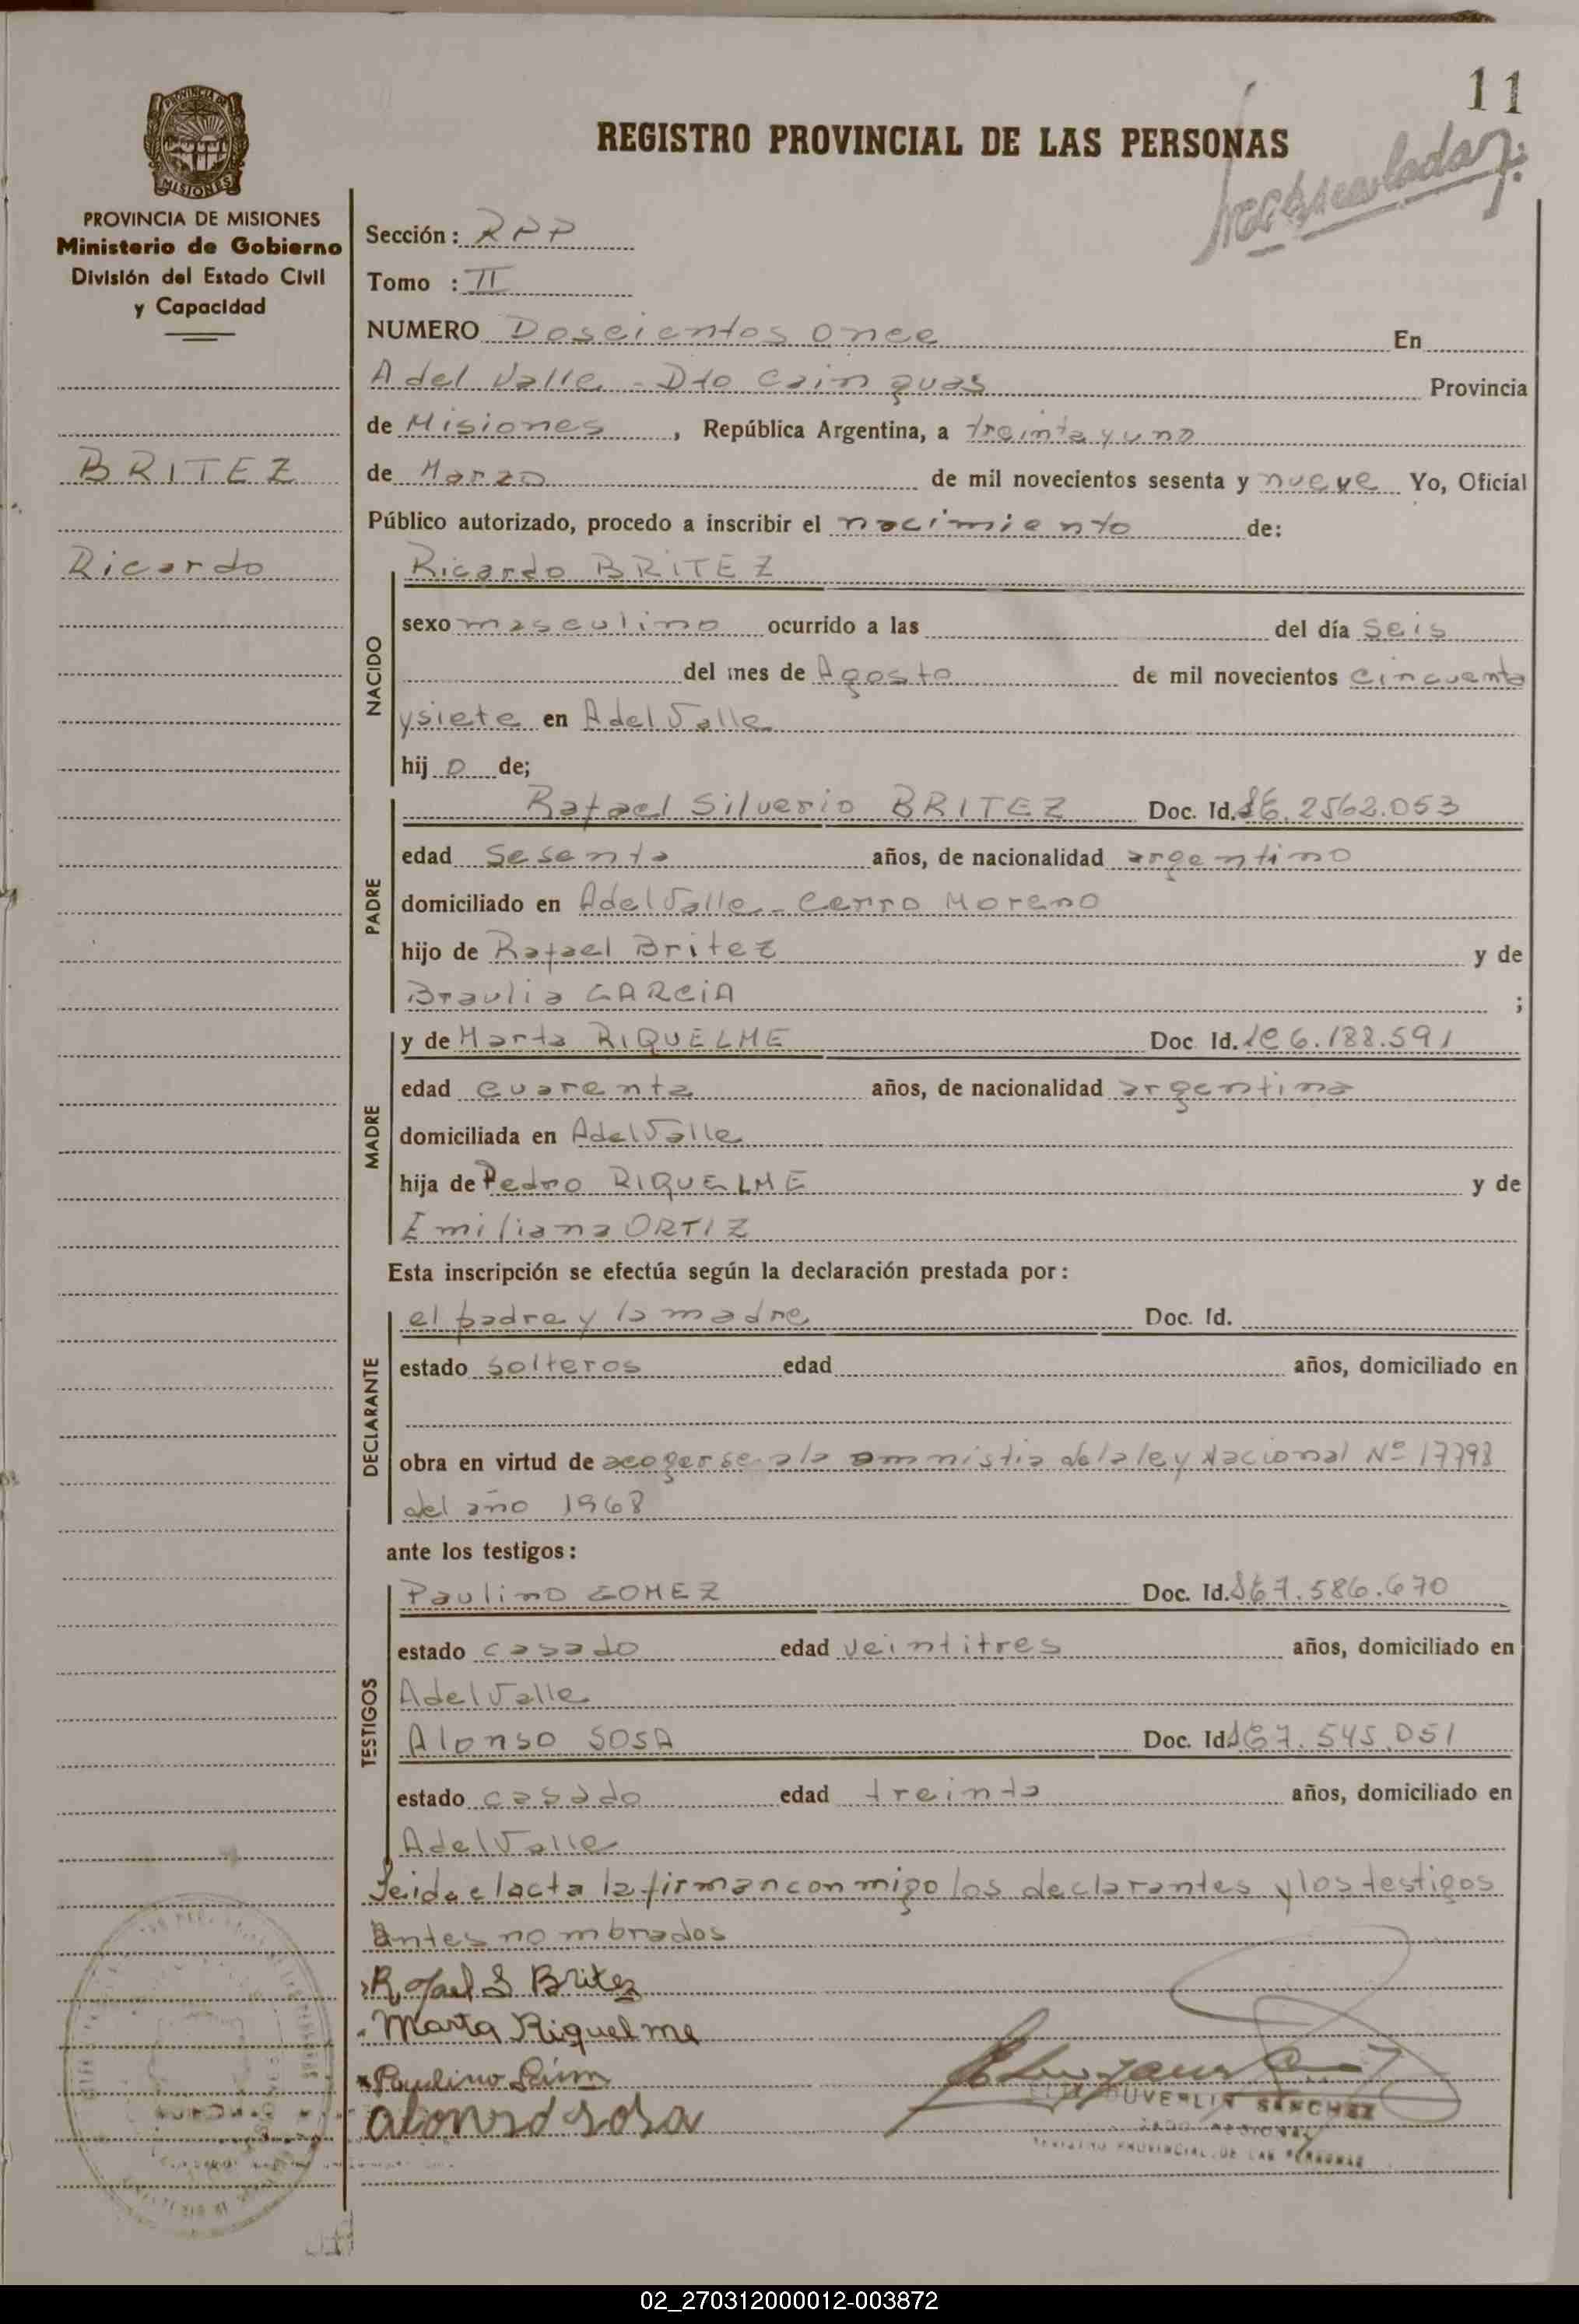 11
REGISTRO PROVINCIAL DE LAS PERSONAS
PROVINCIA DE MISIONES
MISIONES
PROVINCIA DE MISIONES
Ministerio de Gobierno
División del Estado Civil
y Capacidad
BRITEZ
Ricardo
Sección: RPP
Tomo : II
NUMERO Doscientos once En
A del Valle - Dto Cainguas Provincia
de Misiones, República Argentina, a treinta y uno
de Marzo de mil novecientos sesenta y nueve Yo, Oficial
Público autorizado, procedo a inscribir el nacimiento de:
NACIDO
Ricardo BRITEZ
sexo masculino ocurrido a las del día seis
del mes de Agosto de mil novecientos cincuenta
y siete en A del Valle
hij o de;
PADRE
Rafael Silverio BRITEZ Doc. Id. LE. 2562.053
edad sesenta años, de nacionalidad argentino
domiciliado en A del Valle - Cerro Moreno
hijo de Rafael Britez y de
Braulia GARCIA ;
MADRE
y de Marta RIQUELME Doc. Id. LC 6.188.591
edad cuarenta años, de nacionalidad argentina
domiciliada en A del Valle
hija de Pedro RIQUELME y de
Emiliana ORTIZ
Esta inscripción se efectúa según la declaración prestada por:
DECLARANTE
el padre y la madre Doc. Id.
estado solteros edad años, domiciliado en
obra en virtud de acogerse a la ammistia de la ley Nacional Nº 17798
del año 1968
ante los testigos:
TESTIGOS
Paulino GOMEZ Doc. Id. LE 7.586.670
estado casado edad veintitres años, domiciliado en
A del Valle
Alonso SOSA Doc. Id. LE 7.545.051
estado casado edad treinta años, domiciliado en
A del Valle
Leida el acta la firman conmigo los declarantes y los testigos
antes nombrados
Rafael S Britez
Marta Riquelme
Paulino
alonso sosa
DUVERLIN SANCHEZ
REGISTRO PROVINCIAL DE LAS PERSONAS
02_270312000012-003872